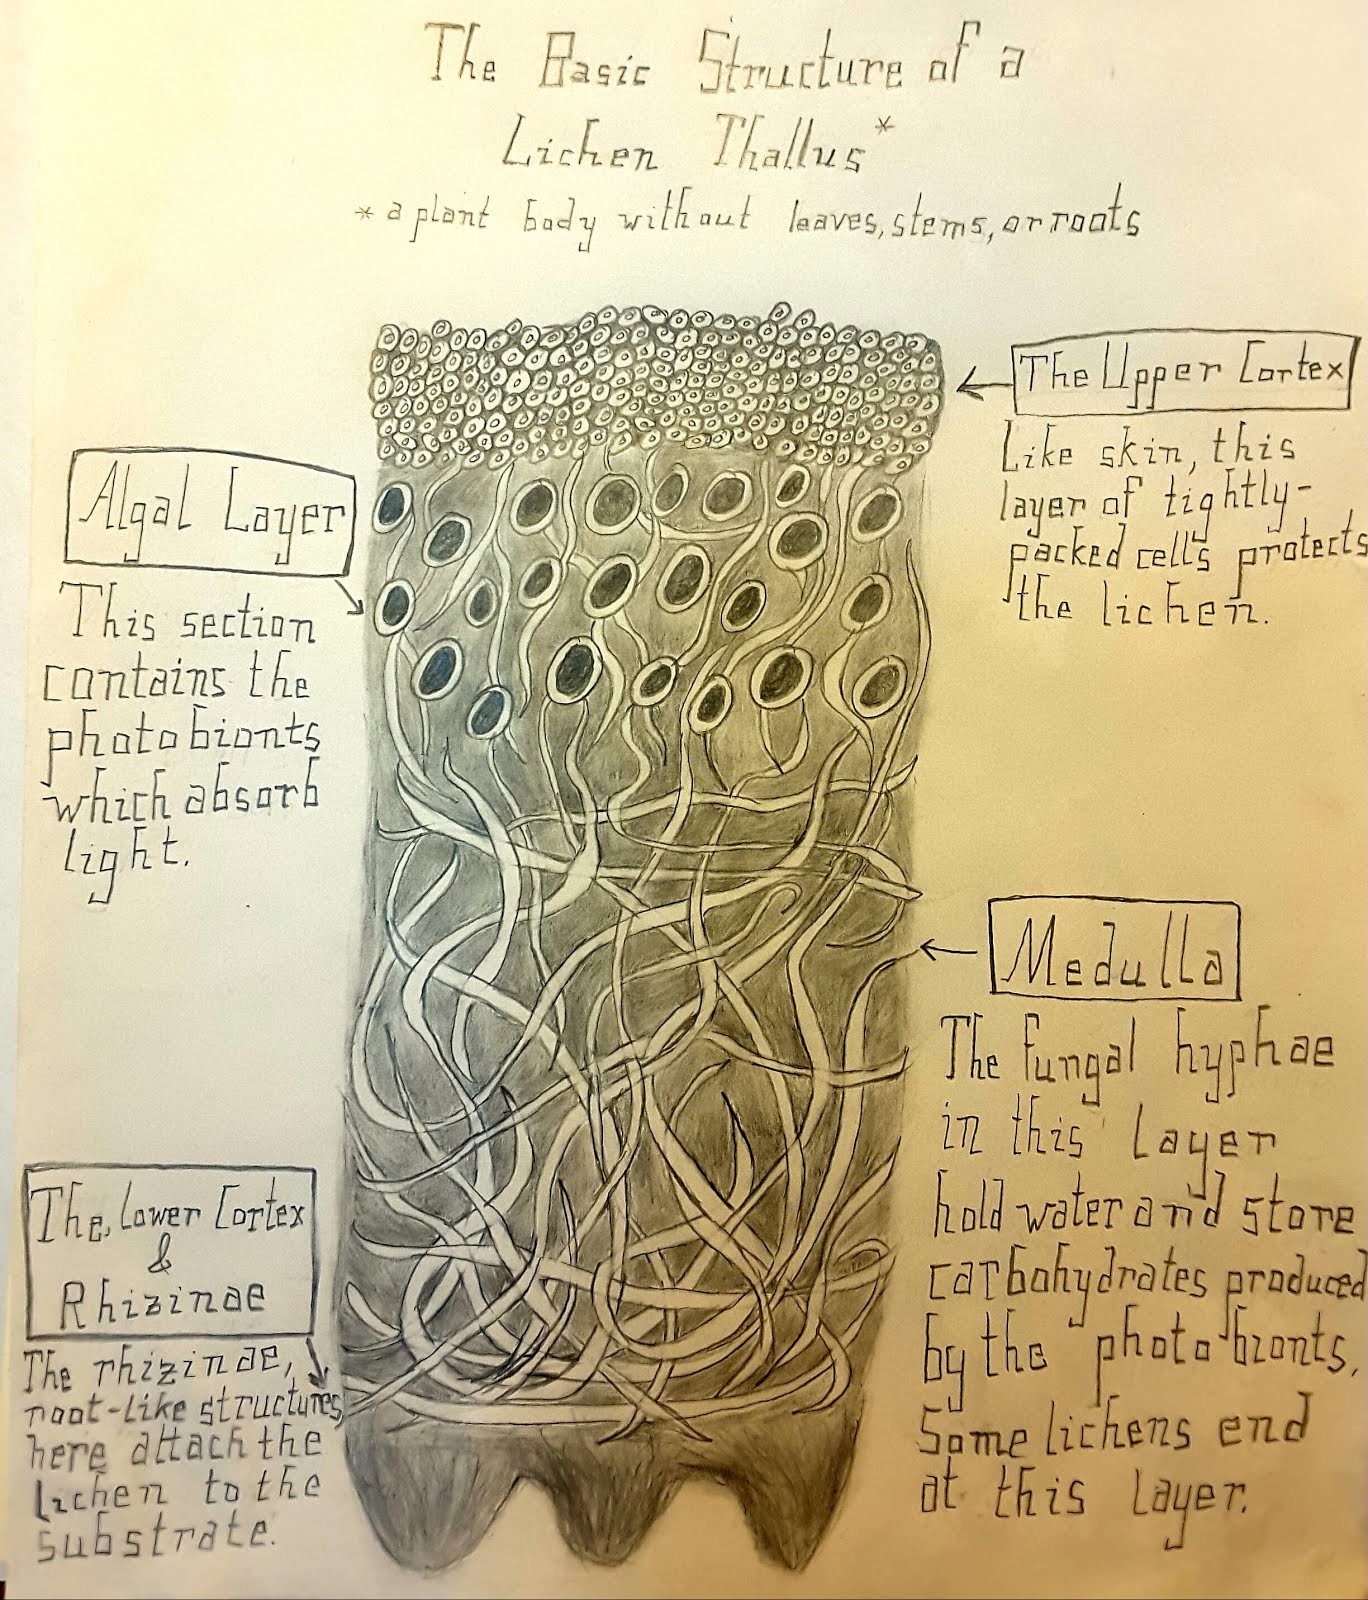 The Basic Structure of a
Lichen Thallus*
* a plant body without leaves, stems, or roots
The Upper Cortex
Like skin, this
layer of tightly-
packed cells protects
the lichen.
Algal Layer
This section
contains the
photobionts
which absorb
light.
Medulla
The fungal hyphae
in this layer
hold water and store
carbohydrates produced
by the photobionts.
Some lichens end
at this layer.
The Lower Cortex
&
Rhizinae
The rhizinae,
root-like structures
here attach the
lichen to the
substrate.